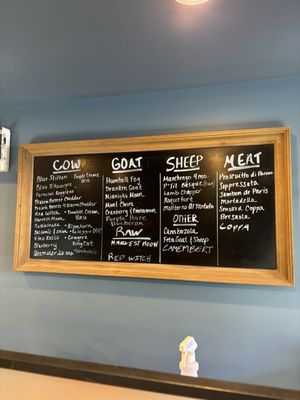 COW
Blue Stilton
Triple Creme
Brie
Bleu D'Auvergne
Parmesan Reggiano
Prairie Breeze Cheddar
Prairie Breeze
Cheddar
Red Witch
Double Cream
Harvest Moon
Brie
Balsamic
Vino Rosso
Gruyere
Blueberry
Beemster
GOAT
Humbolt Fog
Drunken Goat
Midnight Moon
Mont Chevre
Cranberry & Cinnamon
Purple Haze
Bucheron
RAW
HARVEST MOON
RED WITCH
SHEEP
Manchego 4 mo.
P'tit Basque
Lamb Chopper
Roquefort
Moliterno Al Tartufo
OTHER
Cambozola
Feta Goat & Sheep
CAMEMBERT
MEAT
Proscuitto di Parma
Sopressata
Jambon de Paris
Mortadella
Smoked Coppa
Bresaola
COPPA